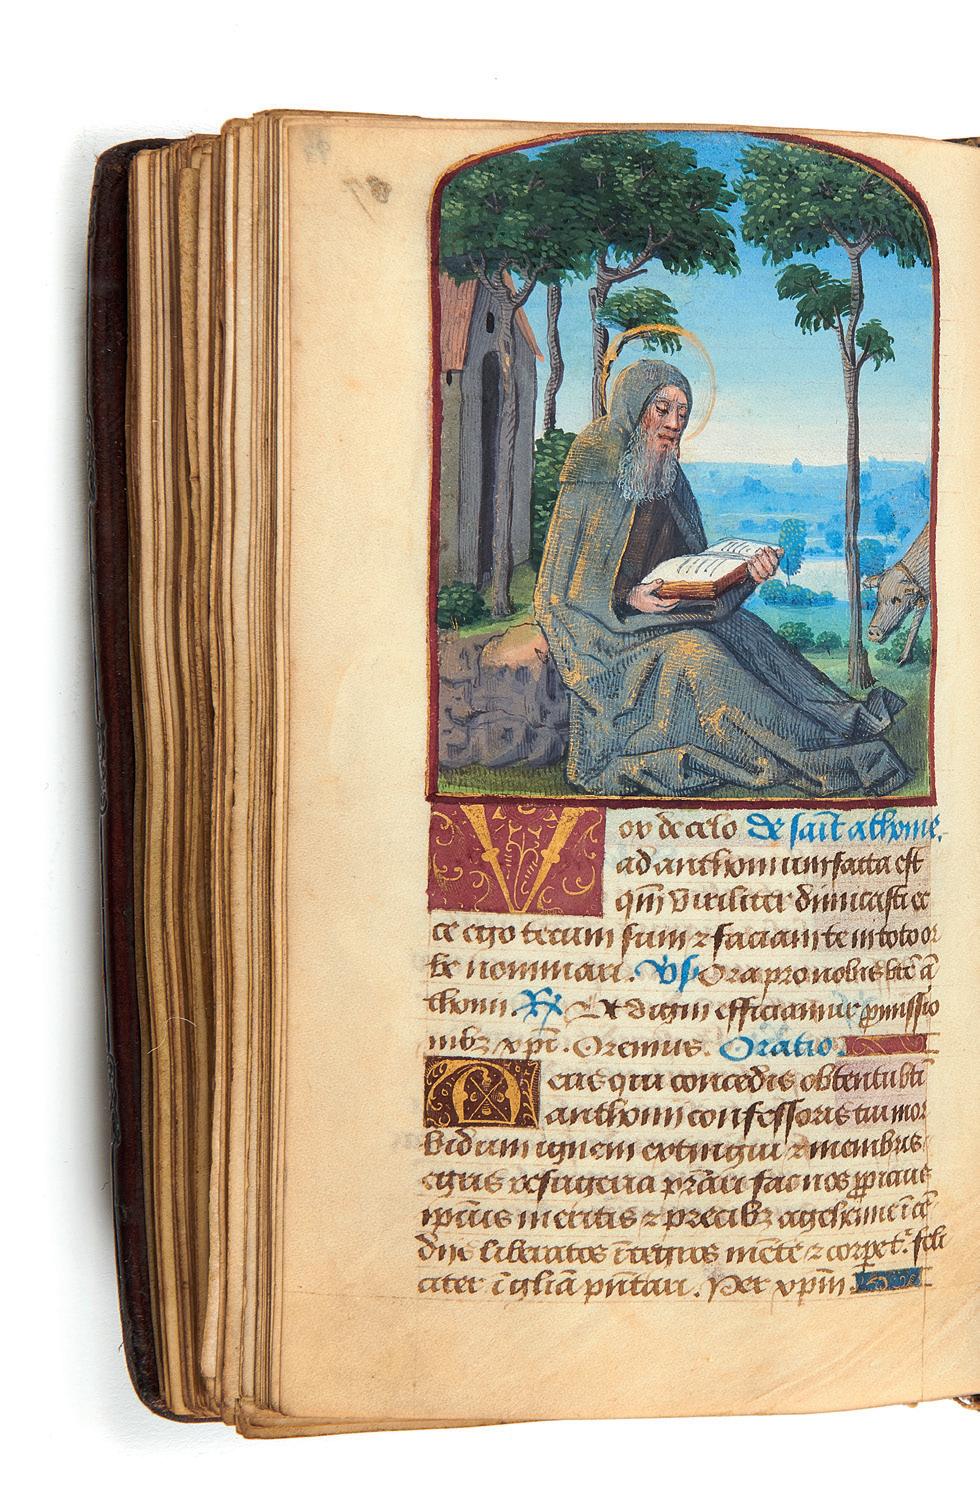 Vox de celo De sait athoine.
ad anthonium facta est
qm̄ viriliter dimicasti ec
ce ego tecum sum ⁊ faciam te in toto or
be nominari. Vs Ora pro nobis btē a
thoni. Rx Ut digni efficiamur ꝓmissio
nibꝫ xpī. Oremus. Oratio.
Deus qui concedis obtentu bti
anthonii confessoris tui mor
bidum ignem extingui ⁊ membris
egris refrigeria p̄rāri fac nos ꝓpicius
ipsius meritis ⁊ precibꝫ a gehenne īcē
diis liberatos ītegros mēte ⁊ corpe t. feli
citer ī glīa pn̄tari. Per xpm̄.